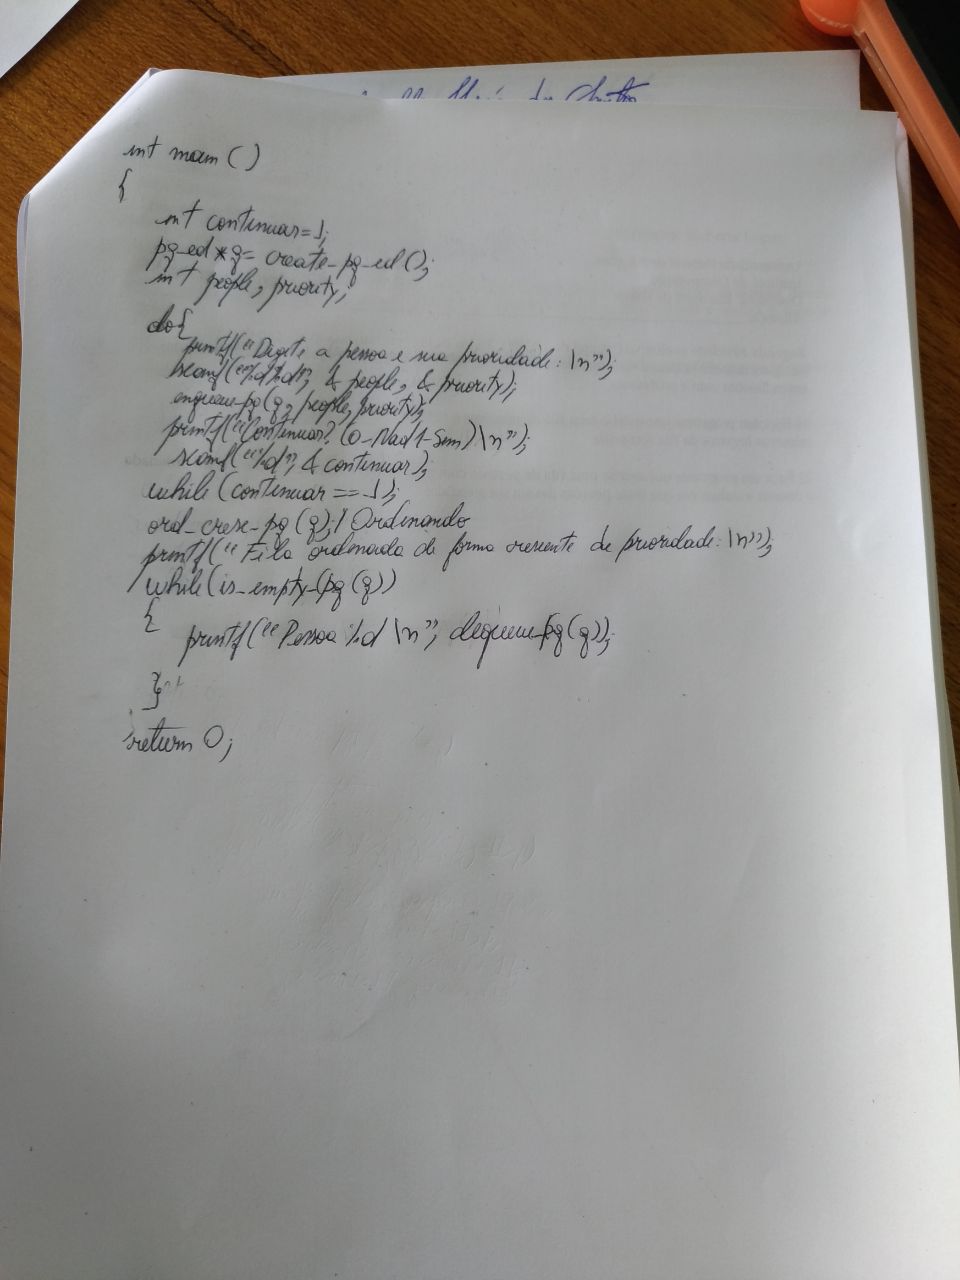 int main ()
{
int continuar=1;
pq_ed *q= create_pq_ed();
int people, priority;
do{
printf("Digite a pessoa e sua prioridade: \n");
scanf("%d%d", & people, & priority);
enqueue_pq(q, people, priority);
printf("Continuar? (0-Nao/1-Sim)\n");
scanf("%d", & continuar);
while (continuar == 1);
ord_cresc_pq (q); / Ordenando
printf("Fila ordenada de forma crescente de prioridade: \n");
while(is_empty_(pq (q))
{
printf("Pessoa %d \n", dequeue_pq(q));
}
return 0;